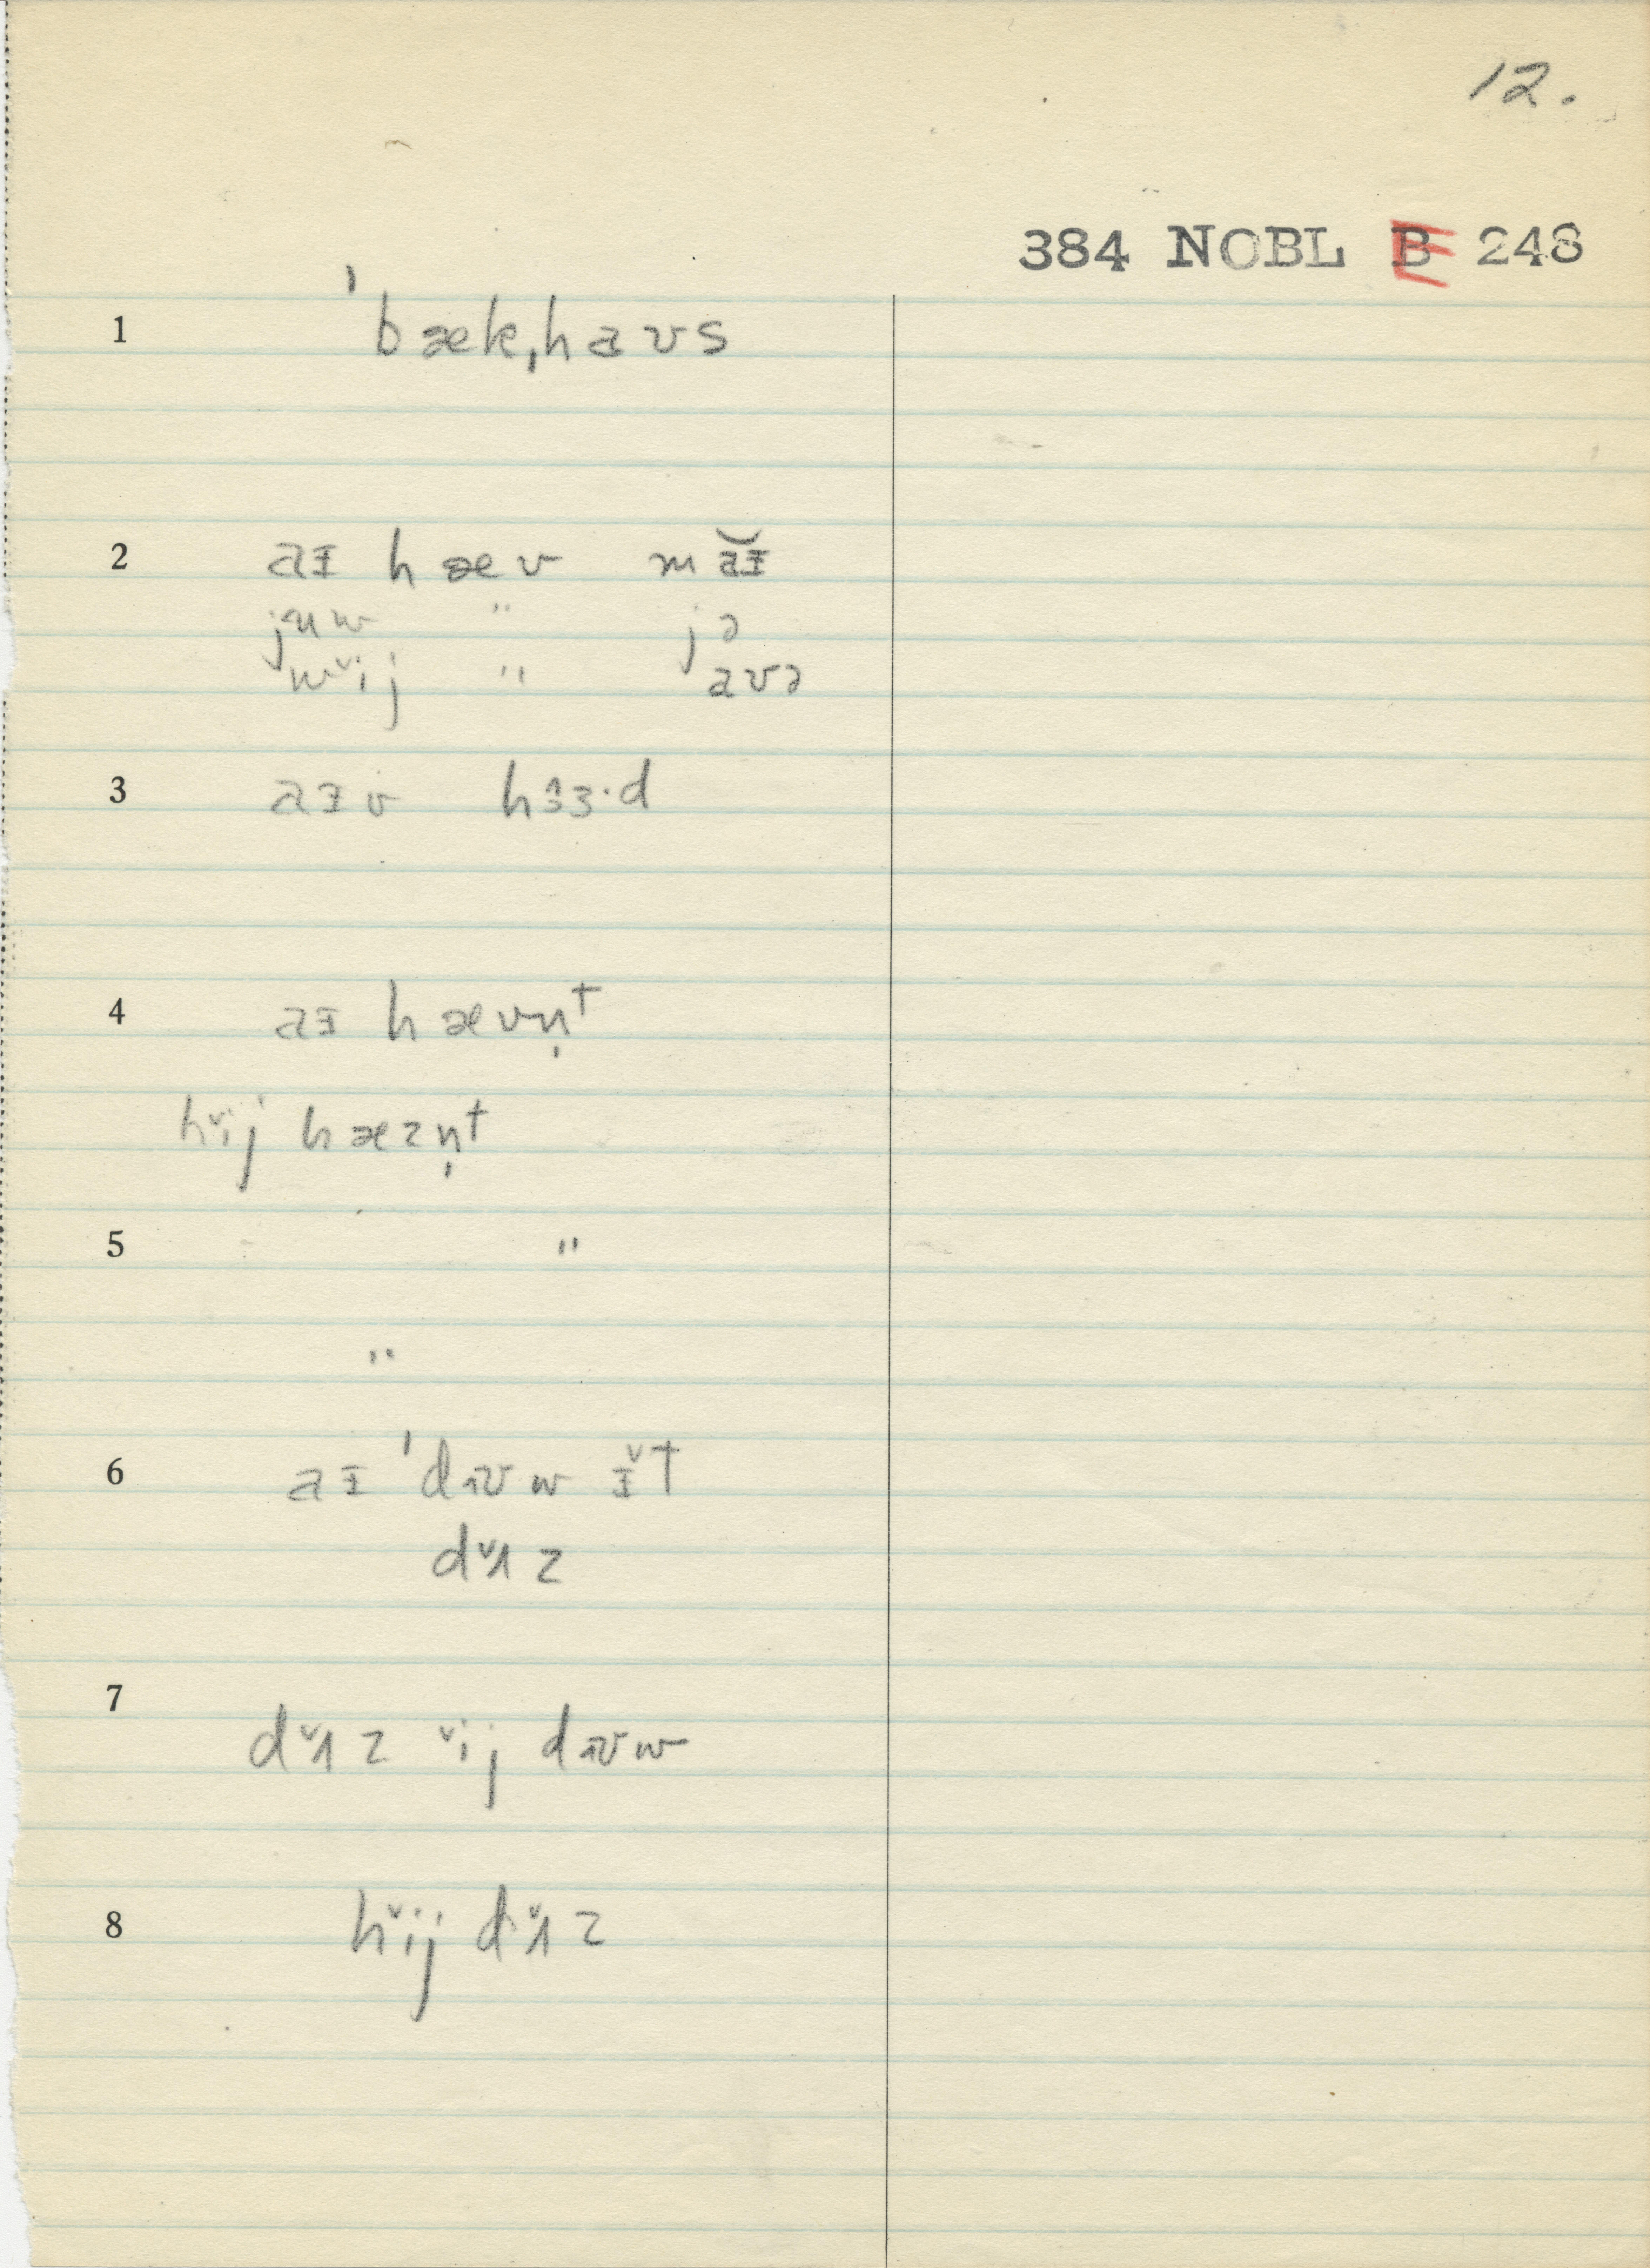 12.
384 NOBL B 248
1 ˈbækˌhaʊs
2 aɪ hæv mă̵ɪ
jʉw " jə
wɪ̆j " aʊə
3 aɪv hɜɜ·d
4 aɪ hævn̩t
hɪ̆j hæzn̩t
5 "
"
6 aɪ ˈdɪʊw ɪ̆t
dʌ̆z
7 dʌ̆z ɪ̆j dɪʊw
8 hɪ̆j dʌ̆z